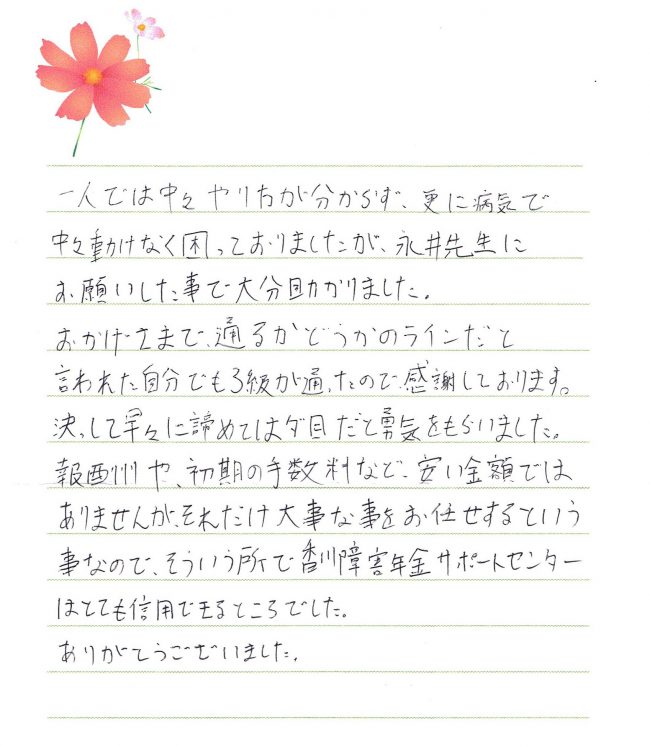 一人では中々やり方が分からず、更に病気で
中々動けなく困っておりましたが、永井先生に
お願いした事で大分助かりました。
おかげさまで、通るかどうかのラインだと
言われた自分でも3級が通ったので、感謝しております。
決して早々に諦めてはダメだと勇気をもらいました。
報酬や、初期の手数料など、安い金額では
ありませんが、それだけ大事な事をお任せするという
事なので、そういう所で香川障害年金サポートセンター
はとても信用できるところでした。
ありがとうございました。